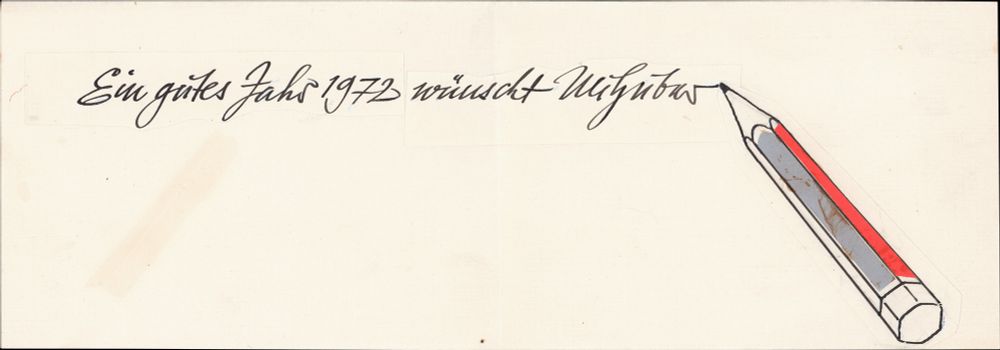 Ein gutes Jahr 1972 wünscht